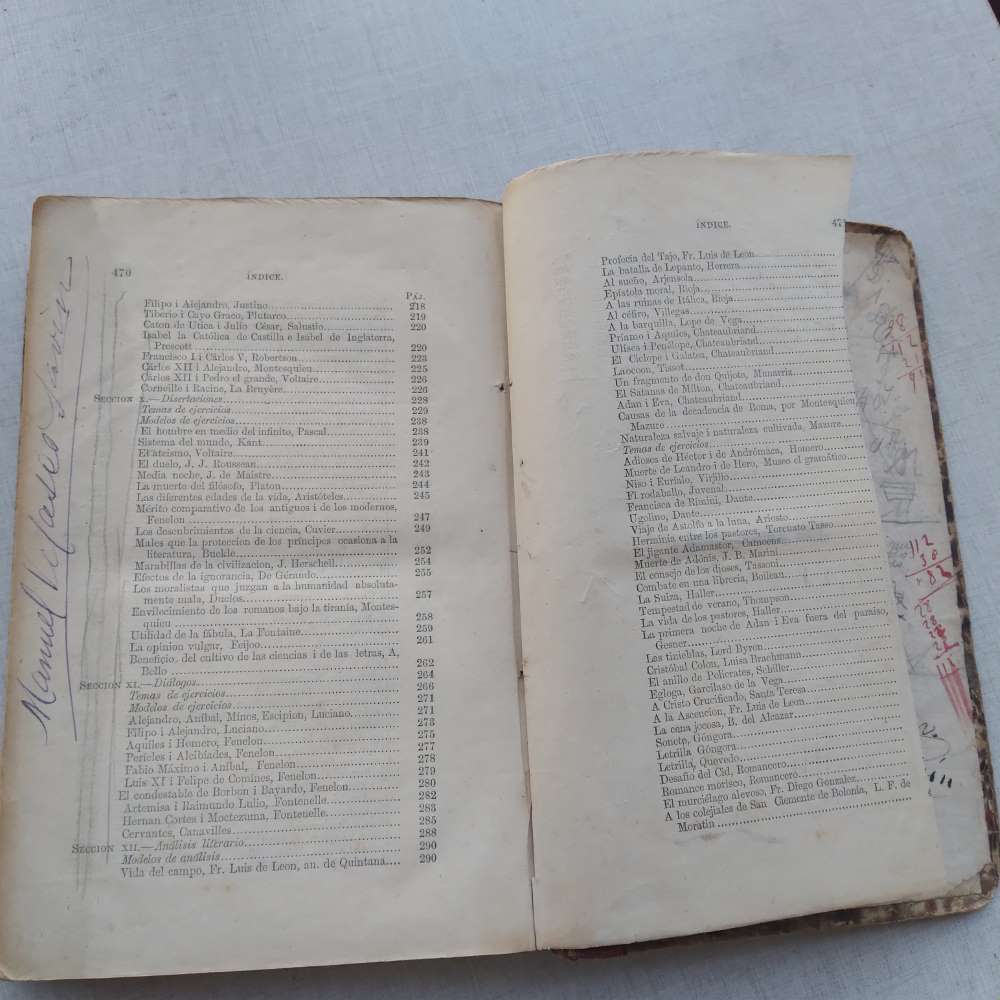 470
ÍNDICE.
PÁJ.
Filipo i Alejandro, Justino........ 218
Tiberio i Cayo Graco, Plutarco........ 219
Caton de Utica i Julio César, Salustio........ 220
Isabel la Católica de Castilla e Isabel de Inglaterra,
Prescott........ 220
Francisco I i Cárlos V, Robertson........ 223
Cárlos XII i Alejandro, Montesquieu........ 225
Cárlos XII i Pedro el grande, Voltaire........ 226
Corneille i Racine, La Bruyère........ 226
SECCION X.—Disertaciones........ 228
Temas de ejercicios........ 229
Modelos de ejercicios........ 238
El hombre en medio del infinito, Pascal........ 238
Sistema del mundo, Kant........ 239
El ateismo, Voltaire........ 241
El duelo, J. J. Rousseau........ 242
Media noche, J. de Maistre........ 243
La muerte del filósofo, Platon........ 244
Las diferentes edades de la vida, Aristóteles........ 245
Mérito comparativo de los antiguos i de los modernos,
Fenelon........ 247
Los descubrimientos de la ciencia, Cuvier........ 249
Males que la proteccion de los príncipes ocasiona a la
literatura, Buckle........ 252
Marabillas de la civilizacion, J. Herschell........ 254
Efectos de la ignorancia, De Gérando........ 255
Los moralistas que juzgan a la humanidad absoluta-
mente mala, Duclos........ 257
Envilecimiento de los romanos bajo la tiranía, Montes-
quieu........ 258
Utilidad de la fábula, La Fontaine........ 259
La opinion vulgar, Feijoo........ 261
Beneficio del cultivo de las ciencias i de las letras, A.
Bello........ 262
SECCION XI.—Diálogos........ 264
Temas de ejercicios........ 266
Modelos de ejercicios........ 271
Alejandro, Aníbal, Minos, Escipion, Luciano........ 271
Filipo i Alejandro, Luciano........ 273
Aquiles i Homero, Fenelon........ 275
Pericles i Alcibíades, Fenelon........ 277
Fabio Máximo i Aníbal, Fenelon........ 278
Luis XI i Felipe de Comines, Fenelon........ 279
El condestable de Borbon i Bayardo, Fenelon........ 280
Artemisa i Raimundo Lulio, Fontenelle........ 282
Hernan Cortes i Moctezuma, Fontenelle........ 283
Cervantes, Canavilles........ 285
SECCION XII.—Análisis literario........ 288
Modelos de análisis........ 290
Vida del campo, Fr. Luis de Leon, an. de Quintana.... 290
Manuel Velasco
ÍNDICE.
47
Profecía del Tajo, Fr. Luis de Leon
La batalla de Lepanto, Herrera
Al sueño, Arjensola
Epístola moral, Rioja
A las ruinas de Itálica, Rioja
Al céfiro, Villegas
A la barquilla, Lope de Vega
Príamo i Aquiles, Chateaubriand
Ulíses i Penélope, Chateaubriand
El Cíclope i Galatea, Chateaubriand
Laocoon, Tissot
Un fragmento de don Quijote, Munárriz
El Satanas de Milton, Chateaubriand
Adan i Eva, Chateaubriand
Causas de la decadencia de Roma, por Montesquieu,
Mazure
Naturaleza salvaje i naturaleza cultivada, Mazure
Temas de ejercicios
Adioses de Héctor i de Andrómaca, Homero
Muerte de Leandro i de Hero, Museo el gramático
Niso i Euríalo, Virjilio
El rodaballo, Juvenal
Francisca de Rímini, Dante
Ugolino, Dante
Viaje de Astolfo a la luna, Ariosto
Herminia entre los pastores, Torcuato Tasso
El jigante Adamastor, Camoens
Muerte de Adónis, J. B. Marini
El consejo de los dioses, Tassoni
Combate en una librería, Boileau
La Suiza, Haller
Tempestad de verano, Thompson
La vida de los pastores, Haller
La primera noche de Adan i Eva fuera del paraiso,
Gesner
Las tinieblas, Lord Byron
Cristóbal Colon, Luisa Brachmann
El anillo de Polícrates, Schiller
Egloga, Garcilaso de la Vega
A Cristo Crucificado, Santa Teresa
A la Ascencion, Fr. Luis de Leon
La cena jocosa, B. del Alcazar
Soneto, Góngora
Letrilla Góngora
Letrilla, Quevedo
Desafío del Cid, Romancero
Romance morisco, Romancero
El murciélago alevoso, Fr. Diego Gonzalez
A los colejiales de San Clemente de Bolonia, L. F. de
Moratin
112
30
82
28
28